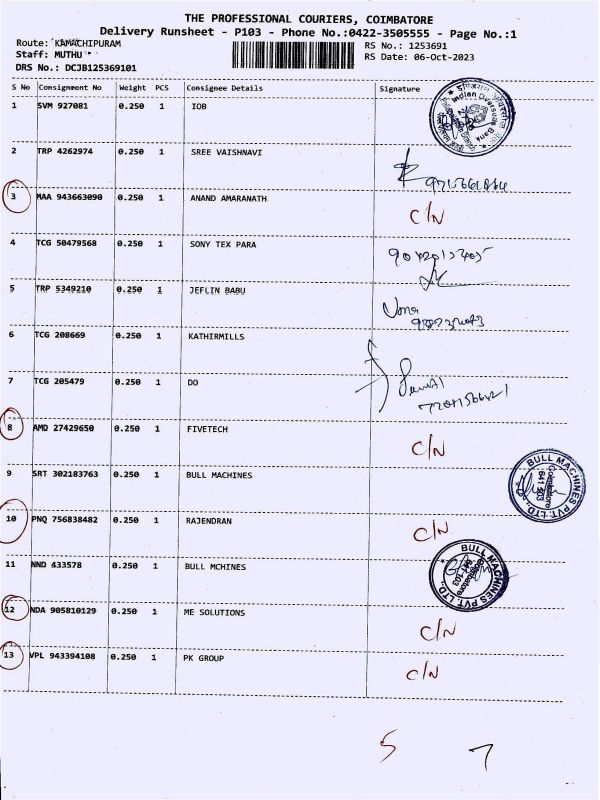 THE PROFESSIONAL COURIERS, COIMBATORE
Delivery Runsheet - P103 - Phone No.:0422-3505555 - Page No.:1
Route: KAMACHIPURAM
RS No.: 1253691
Staff: MUTHU
RS Date: 06-Oct-2023
DRS No.: DCJB125369101
S No Consignment No Weight PCS Consignee Details Signature
1 SVM 927081 0.250 1 IOB
Indian Overseas Bank
2 TRP 4262974 0.250 1 SREE VAISHNAVI
3 MAA 943663090 0.250 1 ANAND AMARANATH C/N
4 TCG 50479568 0.250 1 SONY TEX PARA
5 TRP 5349210 0.250 1 JEFLIN BABU
6 TCG 208669 0.250 1 KATHIRMILLS
7 TCG 205479 0.250 1 DO
8 AMD 27429650 0.250 1 FIVETECH C/N
9 SRT 302183763 0.250 1 BULL MACHINES
BULL MACHINES PVT. LTD.
Coimbatore
641 103
10 PNQ 756838482 0.250 1 RAJENDRAN C/N
11 NND 433578 0.250 1 BULL MCHINES
BULL MACHINES PVT. LTD.
Coimbatore
641 103
12 NDA 905810129 0.250 1 ME SOLUTIONS C/N
13 VPL 943394108 0.250 1 PK GROUP C/N
5 7